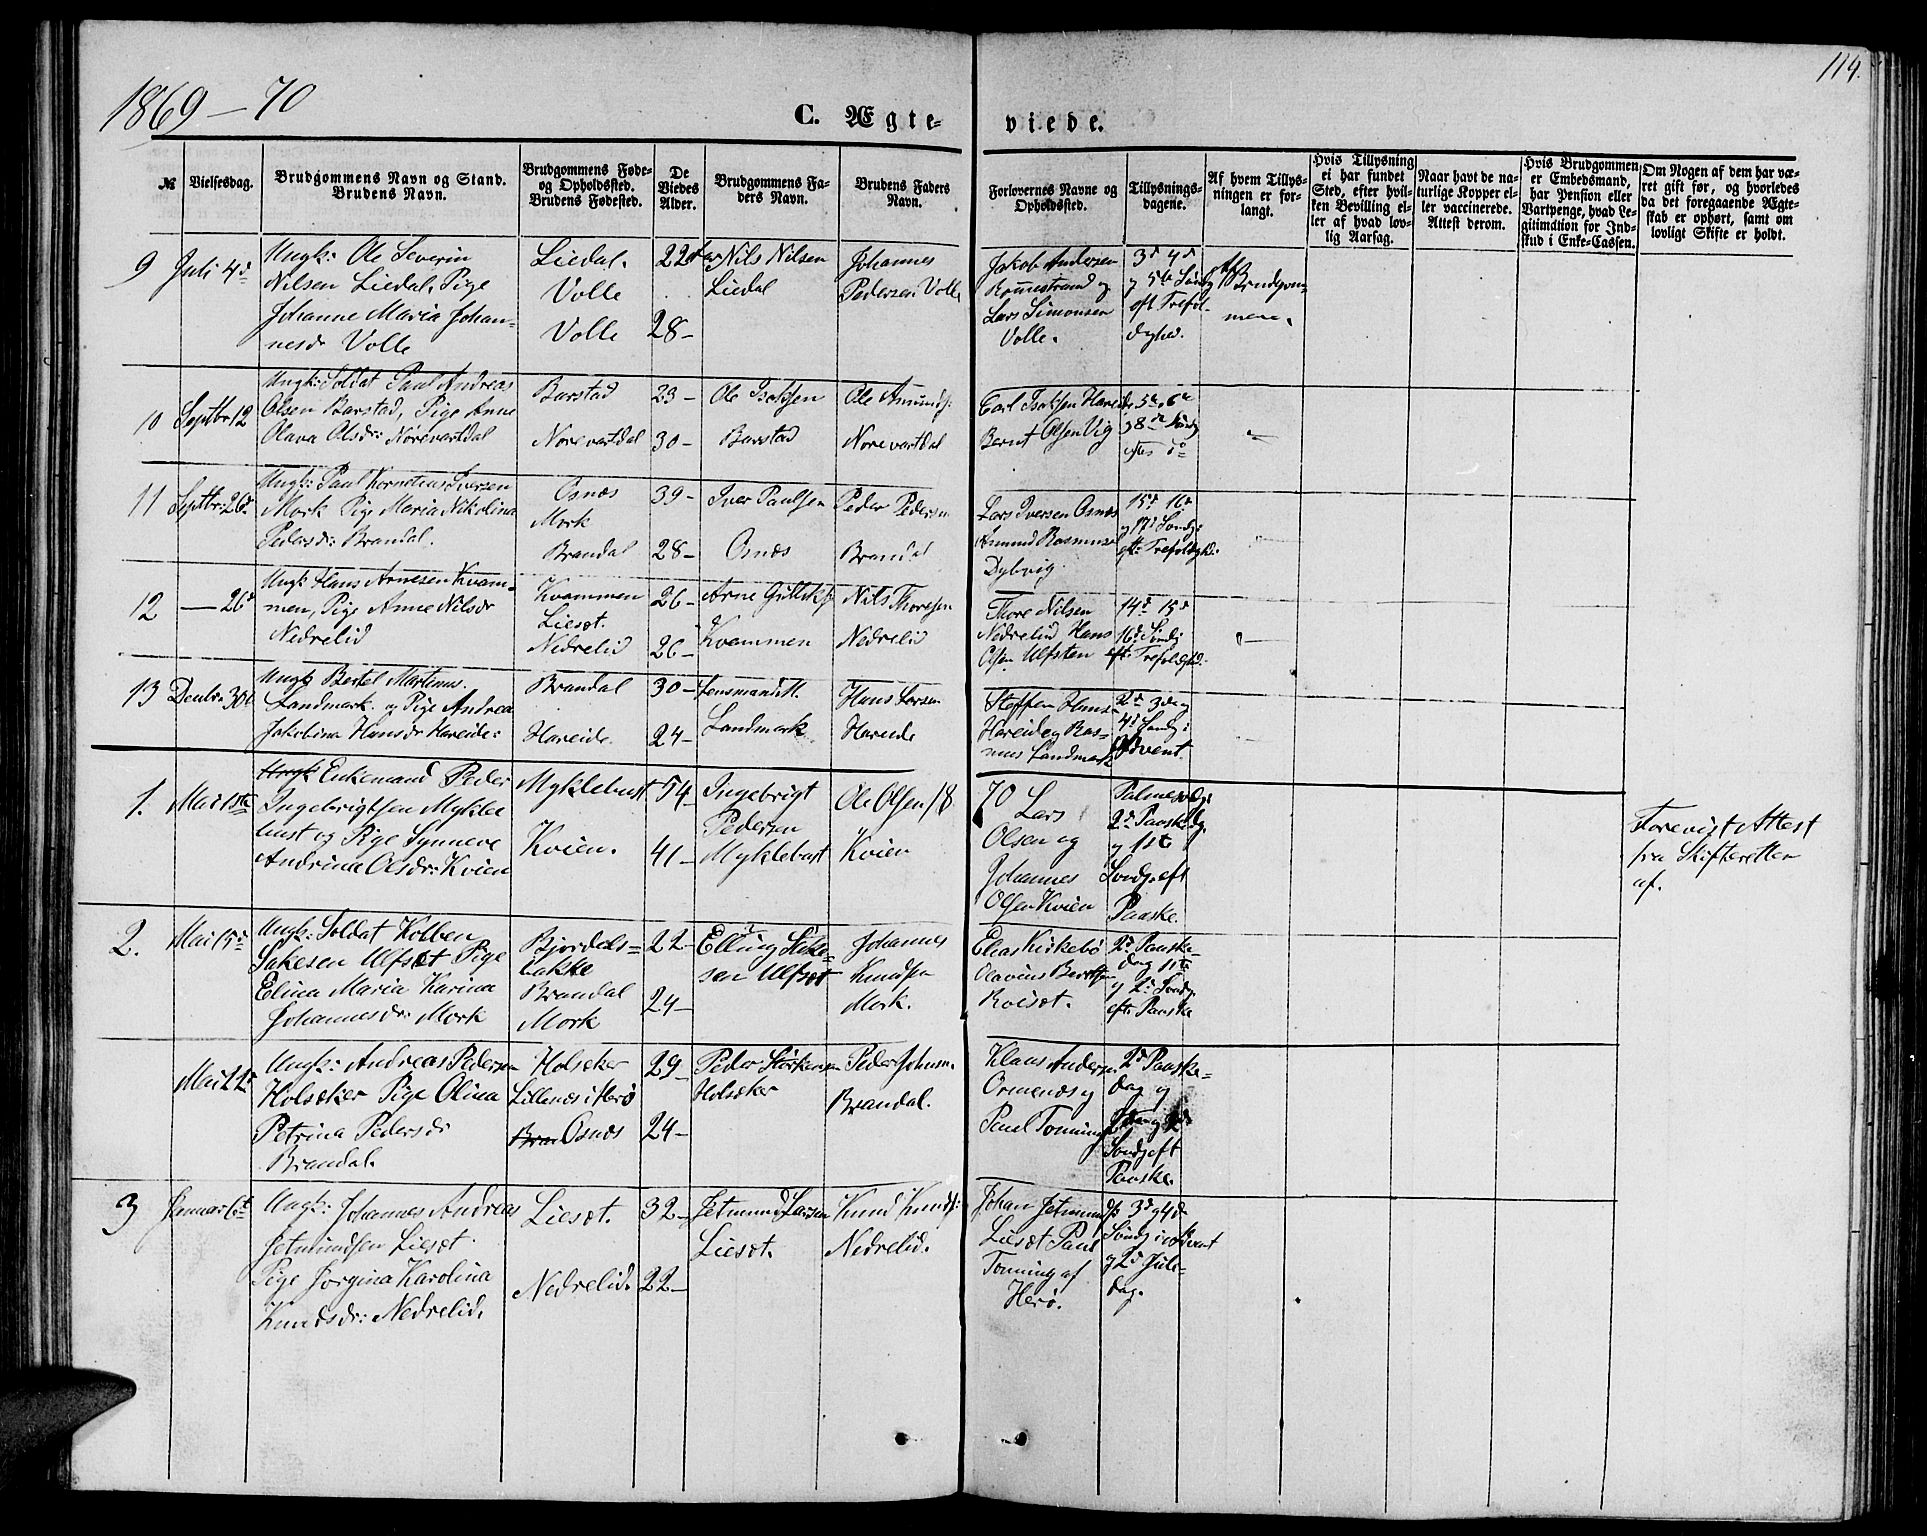 1869-70
114.
C. Ægte-
viede.
№
Vielsesdag.
Brudgommens Navn og Stand.
Brudens Navn.
Brudgommens Føde-
og Opholdssted.
Brudens Fødested.
De
Viedes
Alder.
Brudgommens Fa-
ders Navn.
Brudens Faders
Navn.
Forlovernes Navne og
Opholdssted.
Tillysnings-
dagene.
Af hvem Tillys-
ningen er for-
langt.
Hvis Tillysning
ei har fundet
Sted, efter hvil-
ken Bevilling el-
ler af hvad lov-
lig Aarsag.
Naar havt de na-
turlige Kopper el-
ler vaccinerede.
Attest derom.
Hvis Brudgommen
er Embedsmand,
har Pension eller
Vartpenge, hvad Le-
gitimation for Ind-
skud i Enke-Cassen.
Om Nogen af dem har væ-
ret gift før, og hvorledes
da det foregaaende Ægte-
skab er ophørt, samt om
lovligt Skifte er holdt.
9
Juli 4de
Ungk: Ole Severin
Nilsen Liedal, Pige
Johanne Maria Johan-
nesdr Volle
Liedal.
Volle
Volle
22
28-
Nils Nilsen
Liedal
Johannes
Pedersen Volle
Jakob Andersen
Rommestrand og
Lars Simonsen
Volle.
3de 4de
og 5te Søndg
eft Trefol-
dghed.
Af Brudgom-
men.
10
Septbr 12
Ungk: Soldat Paul Andreas
Olsen Barstad, Pige Anne
Olava Olsdr: Norevartdal
Barstad
Norevartdal
23-
30-
Ole Isaksen
Barstad
Ole Amunds:
Norevartdal
Carl Isaksen Hareide
Bernt Olsen Vig
5te, 6te
og 8de Søndg
eftr do
11
Septbr: 26de
Ungk: Paul Kornelius Iversen
Mork Pige Maria Nikolina
Pedersdr: Brandal.
Osnæs
Mork
Brandal
39-
28-
Iver Paulsen
Osnæs
Peder Pedersen
Brandal
Lars Iversen Osnæs
Amund Rasmusen
Dybvig
15de 16de
og 17de Søndg:
eft: Trefoldghd:
12
— 26de
Ungk: Hans Arnesen Kvam-
men, Pige Anne Nilsdr
Nedrelid
Kvammen
Liesæt.
Nedrelid
26-
26-
Arne Gullikss
Kvammen
Nils Thoresen
Nedrelid
Thore Nilsen
Nedrelid Hans
Olsen Ulfsten
14de 15de
16de Søndg
eft: Trefoldghd.
13
Decbr 30te
Ungk Bertel Martinus
Landmark og Pige Andrea
Jakobina Hansdr Hareide:
Brandal
Hareide.
30-
24-
Lensmand
Landmark
Hans Larsen
Hareide
Steffen Hansen
Hareide og Ras-
mus Landmark
2de 3de og
4de Søndg i
Advent.
1.
Mai 1ste
Ungk Enkemand Peder
Ingebrigtsen Mykle
bust og Pige Synneve
Andrina Olsdr: Kvien
Myklebust
Kvien.
54-
41-
Ingebrigt
Pedersen
Myklebust
Ole Olsen
Kvien
18 70
Lars
Olsen og
Johannes
Olsen Kvien
Palmesødg:
2de Paaskedg.
og 1ste
Søndg. eft
Paaske.
Forevist Attest
fra Skifteretten
af.
2.
Mai 15de
Ungk: Soldat Kolben
Sakesen Ulfsæt Pige
Elina Maria Karina
Johannesdr: Mork
Bjørdals-
bakke
Brandal
Mork
22-
24-
Elling Sake-
sen Ulfsæt
Johannes
Knudsen
Mork.
Elias Kirkebø
Olavius Berntsen
Roisæt.
2de Paaske-
dag 1ste
og 2de Søndg.
eft: Paaske
Mai 22de
Ungk: Andreas Pedersen
Holsæker Pige Olina
Petrina Pedersdr
Brandal.
Holsæker
Lillenæs i Herø
Bran Osnæs
29-
24-
Peder Størkersen
Holsæker
Peder Johnsen
Brandal.
Klaus Andersn
Ormenæs og
Paul Tonning
2de Paaske-
dag og
Søndg. eft
Paaske.
3
Januar 6te
Ungk: Johannes Andreas
Jetmundsen Liesæt
Pige Jørgina Karolina
Knudsdr: Nedrelid.
Liesæt.
Nedrelid.
32-
22-
Jetmund Larsen
Liesæt.
Knud Knuds:
Nedrelid.
Johan Jetmunds
Liesæt Paul
Tonning af
Herø.
3de og 4de
Søndg i Advent
og 2de Jule-
dag.